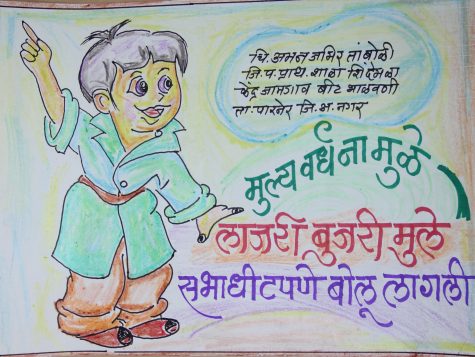 चि अमन जमिर तांबोळी
जि.प.प्राथ.शाळा शिंदेमळा
केंद्र जामगाव बीट भाळवणी
ता.पारनेर जि.अ.नगर
मुल्य वर्धनामुळे
लाजरी बुजरी मुले
सभाधीटपणे बोलू लागली